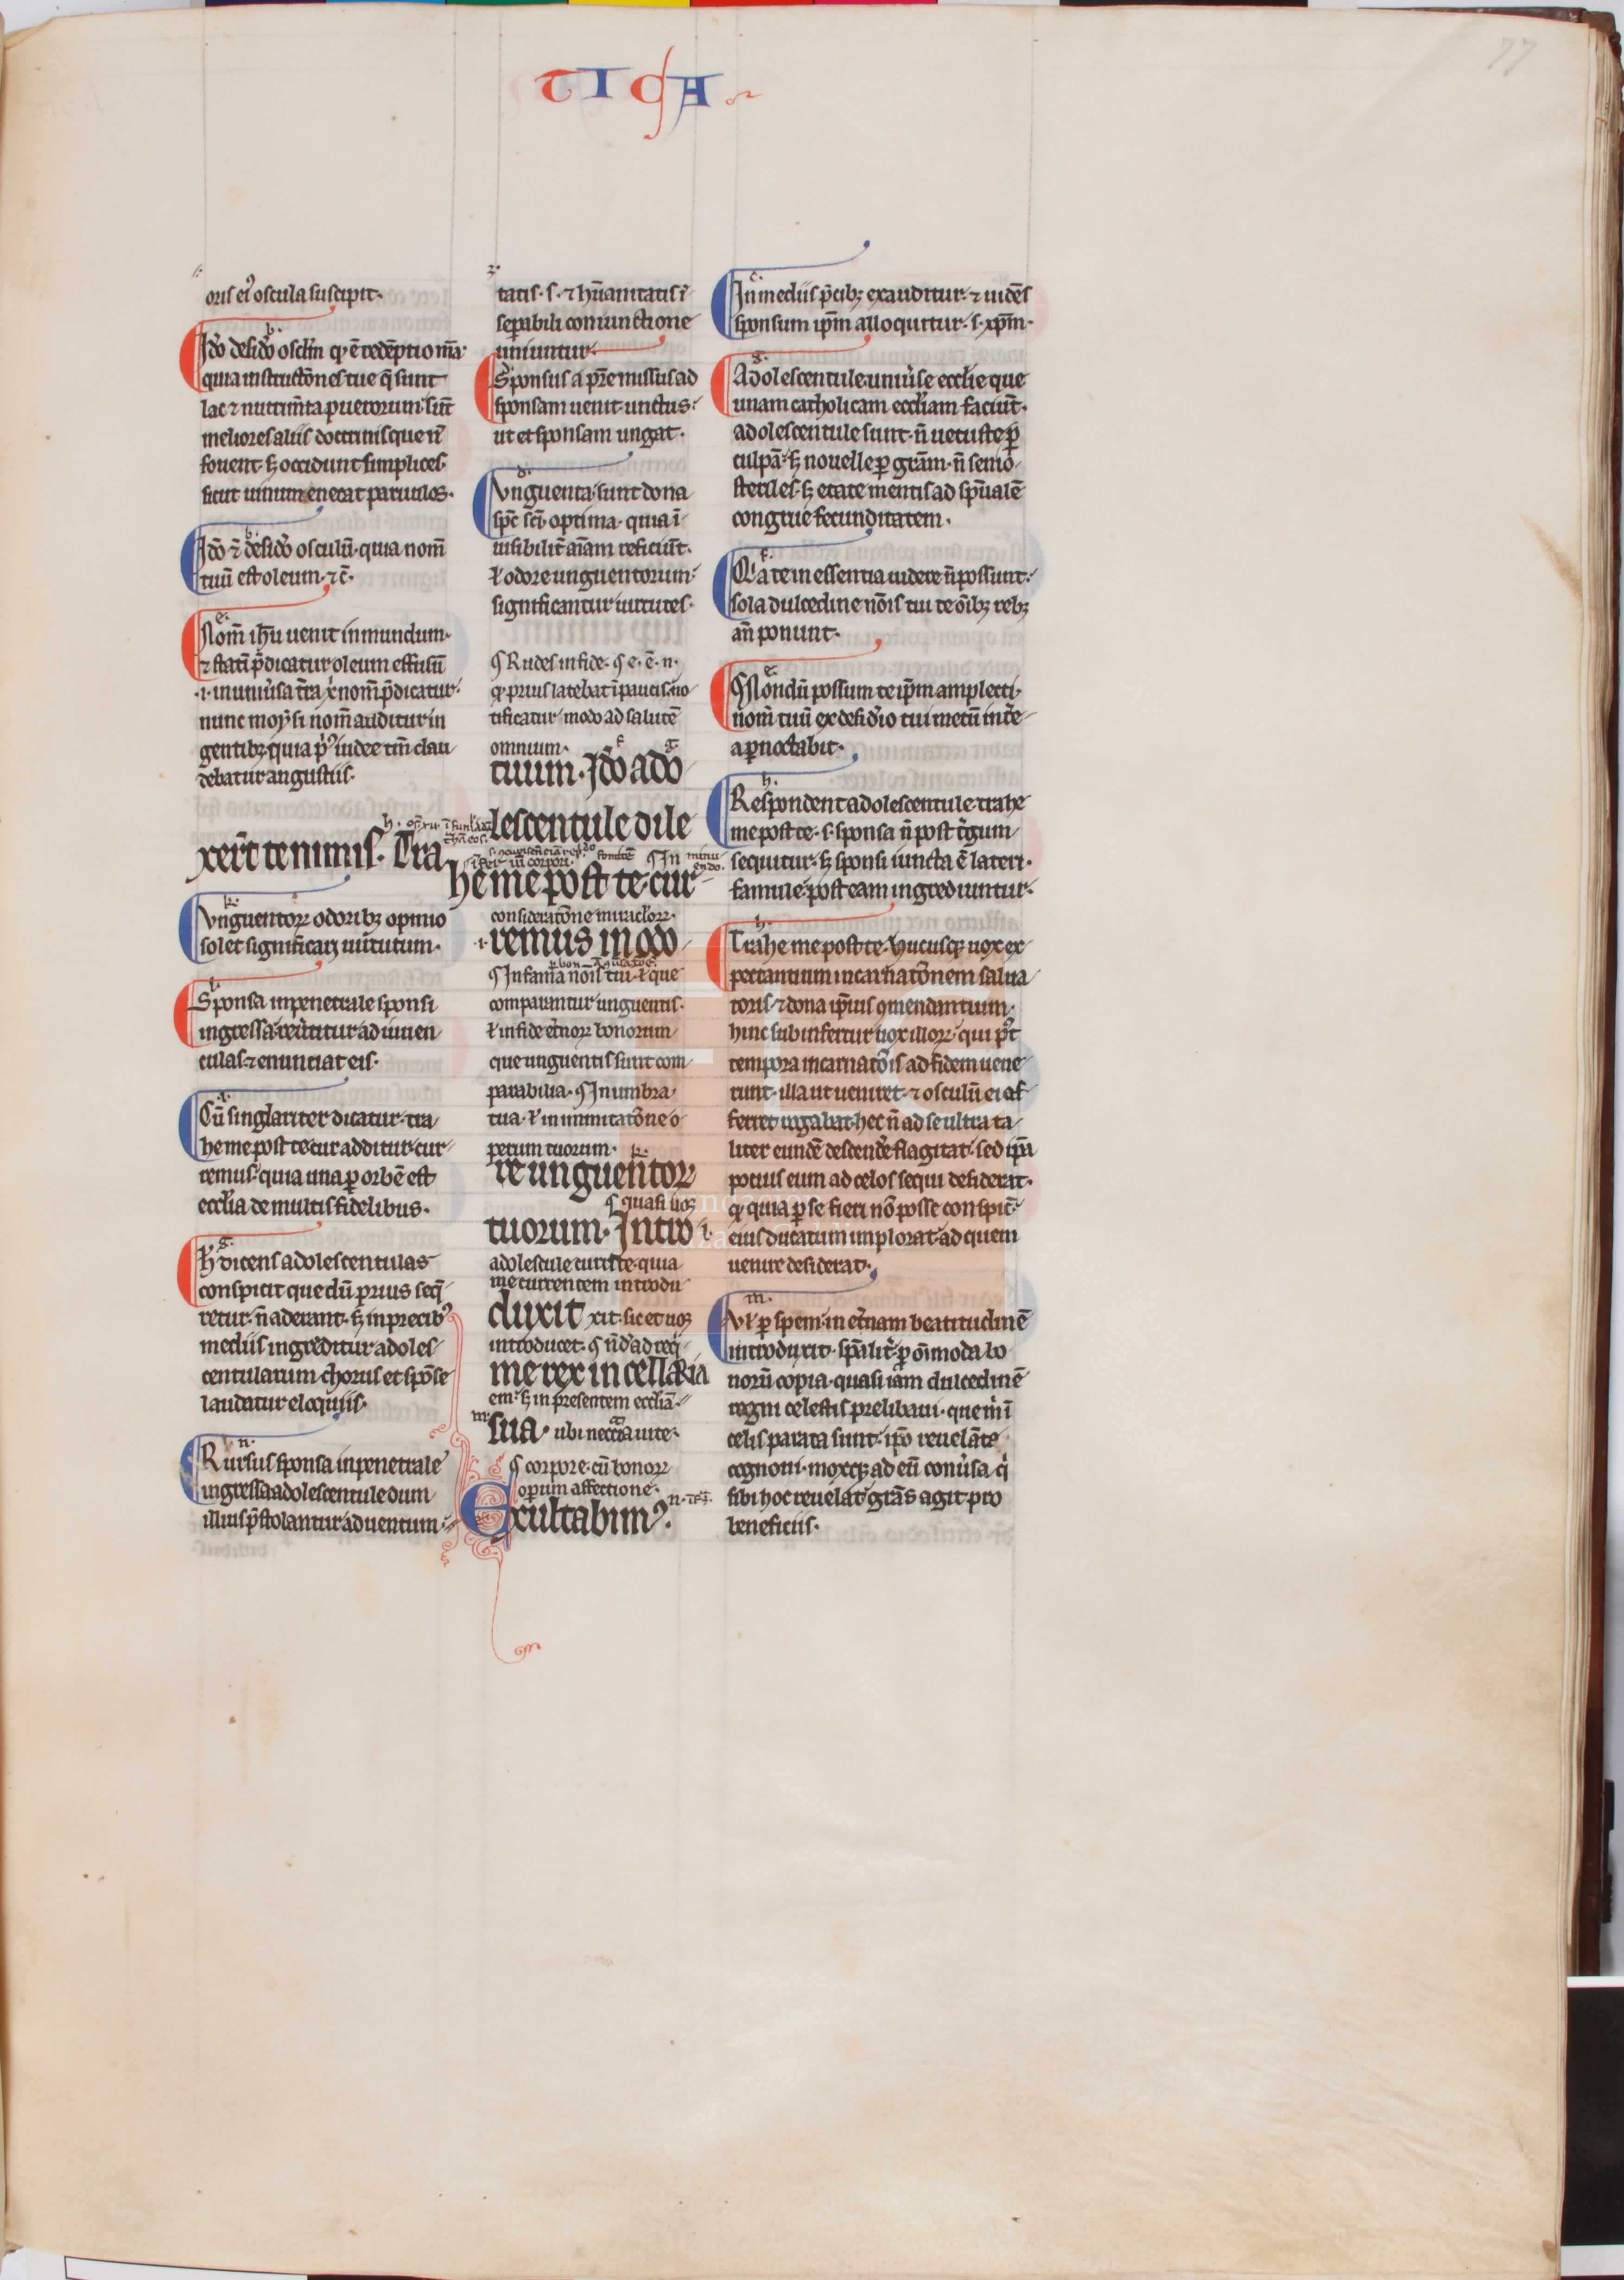 TICA
77
oris eiꝰ oscula suscipit.
b.
Ido desidero osculum quia est redemptio mea
quia instructiões tue que sunt
lac ⁊ nutrimta puerorum sunt
meliores aliis doctrinis que nõ
fouent. sꝫ occidunt simplices
sicut uinum enecat paruulos.
b.
Ido ⁊ desido osculũ. quia nom̃
tuũ est oleum. ⁊ c̃.
e.
Nom̃ ihũ uenit in mundum.
⁊ stati p̃dicatur oleum effusũ
.i. in uniũsa tr̃a xp̃i nom̃ p̃dicatur.
nunc moysi nom̃ auditur in
gentibꝫ quia priꝰ iudee tm̃ clau
debatur angustiis.
xer̃t te nimis. Tra
k.
Vnguentoꝝ odoribꝫ opinio
solet significari uirtutum.
l.
Sponsa in penetrale sponsi
ingressa reũtitur ad iuuen
culas ⁊ enuntiat eis.
i.
Cũ singlariter dicatur. tra
he me post te cur additur cur
remus. quia una ꝑ orbẽ est
ecclia de multis fidelibus.
g.
H̃ dicens adolescentulas
conspicit que dũ prius seq̃
retur. ñ aderant. sꝫ in precibꝰ
mediis ingreditur adoles
centularum chorus et spõse
laudatur eloquiis.
n.
Rursus sponsa in penetrale
ingressa adolescentule dum
illius p̃stolantur aduentum
2.
tatis. s. ⁊ hũanitatis ĩ
separabili coniunctione
uniuntur.
Sponsus a pr̃e missus ad
sponsam uenit unctus.
ut et sponsam ungat.
d.
Vnguenta sunt dona
sp̃c sc̃i optima. quia ĩ
uisibilit̃ aĩam reficiũt.
ł odore unguentorum
significantur uirtutes.
¶ Rudes in fide. ¶ e. ẽ. n.
q̃ prius latebat ĩ paucis. no
tificatur modo ad salutẽ
omnium. f g.
tuum. Ido ado
lescentule dile
he me post te. cur
consideratõne miraclorꝝ.
.i. remus in odo
¶ In fama nois tui. ł que
comparantur unguentis.
ł in fide eternoꝝ bonorum
que unguentis sunt com
parabilia. ¶ In umbra
tua. ł in imitatõne o
perum tuorum. k.
re unguentoꝝ
¶ quasi uoꝫ
tuorum. Intro l.
adolescule curriste. quia
me currentem introdu
duxit xit. sic et uos
introducet.
me rex in cellaria
em. sꝫ in presentem eccliã.
m.
sua. ubi
¶ corpore. cũ bonoꝝ
operum affectione.
Exultabimꝰ. n.
c.
In mediis p̃cibꝫ exauditur. ⁊ uidẽs
sponsum ip̃m alloquitur. s. xp̃m.
g.
Adolescentule uniũse ecclie que
unam catholicam ecclẽiam faciũt.
adolescentule sunt. ñ uetuste ꝑ
culpã. sꝫ nouelle ꝑ grãm. ñ senio
steriles. sꝫ etate mentis ad sp̃ualẽ
congrue fecunditatem.
f.
Quia te in essentia uidere ñ possunt.
sola dulcedine nõis tui te õibꝫ rebꝫ
añ ponunt.
e.
Nondũ possum te ip̃m amplecti.
nom̃ tuũ ex desiderio tui mecũ int̃e
a pernoctabit.
h.
Respondent adolescentule trahe
me post te. s. sponsa ñ post t̃gum
sequitur. sꝫ sponsi iuncta ẽ lateri.
famule post eam ingrediuntur.
h.
Trahe me post te. Hucusqꝫ uox ex
pectantium incarnatõnem salua
toris. ⁊ dona ipsius cõmendantium.
hinc subinfertur uox illoꝝ qui p̃t
tempora incarnatõis ad fidem uene
runt. illa ut ueniret. ⁊ osculũ ei af
ferret rogabat. hec ñ ad se ultra ta
liter eundẽ descendẽ flagitat. sed ip̃a
potius eum ad celos sequi desiderat.
q̃ quia ꝑ se fieri nõ posse conspic̃
eius ducatum implorat ad quem
uenire desiderat.
m.
Vł ꝑ spem in et̃nam beatitudinẽ
introduxit. sp̃alit̃. ꝑ oĩmoda bo
norũ copia. quasi iam dulcedinẽ
regni celestis prelibaui. que m̃ ĩ
celis parata sunt. ip̃o reuelãte
cognoui. moxqꝫ ad eũ conũsa. q̃
sibi hoc reuelat grãs agit pro
beneficiis.